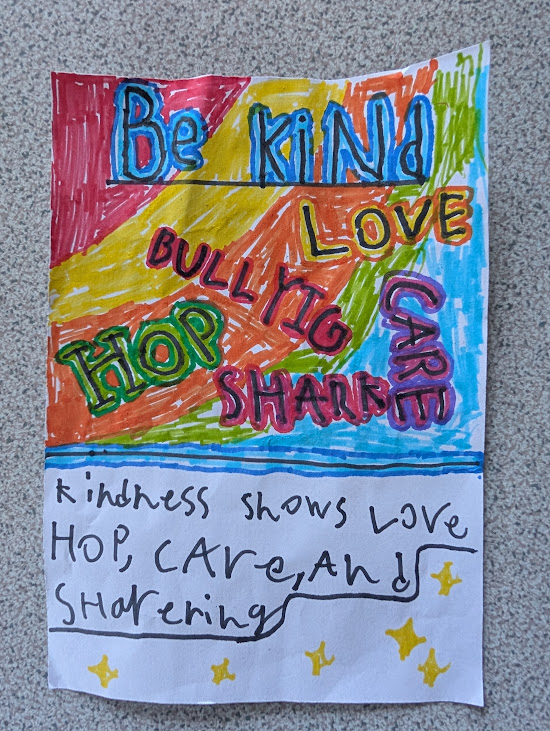 Be KiNd
LOVE
BULLYIG
CARE
HOP
SHARK
kindness shows Love
HOP, CAre, And
SHArering